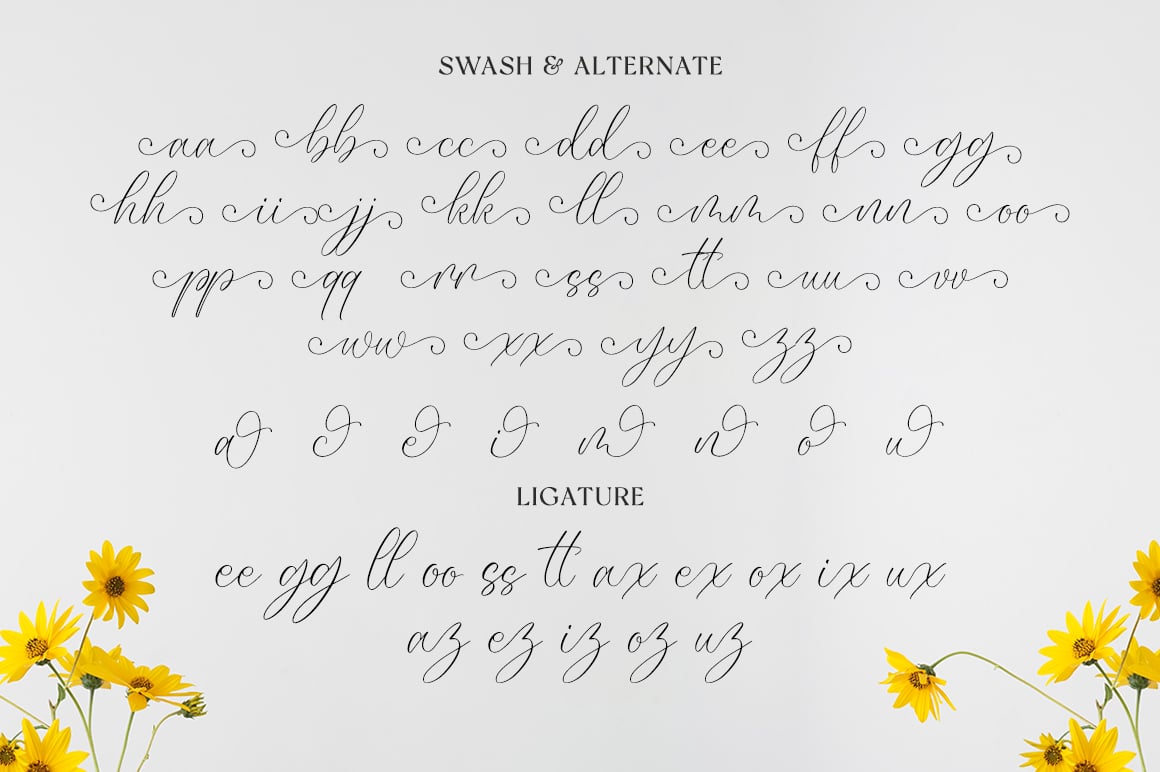 SWASH & ALTERNATE
aa bb cc dd ee ff gg
hh ii jj kk ll mm nn oo
pp qq rr ss tt uu vv
ww xx yy zz
a c e i m n o u
LIGATURE
ee gg ll oo ss tt ax ex ox ix ux
az ez iz oz uz